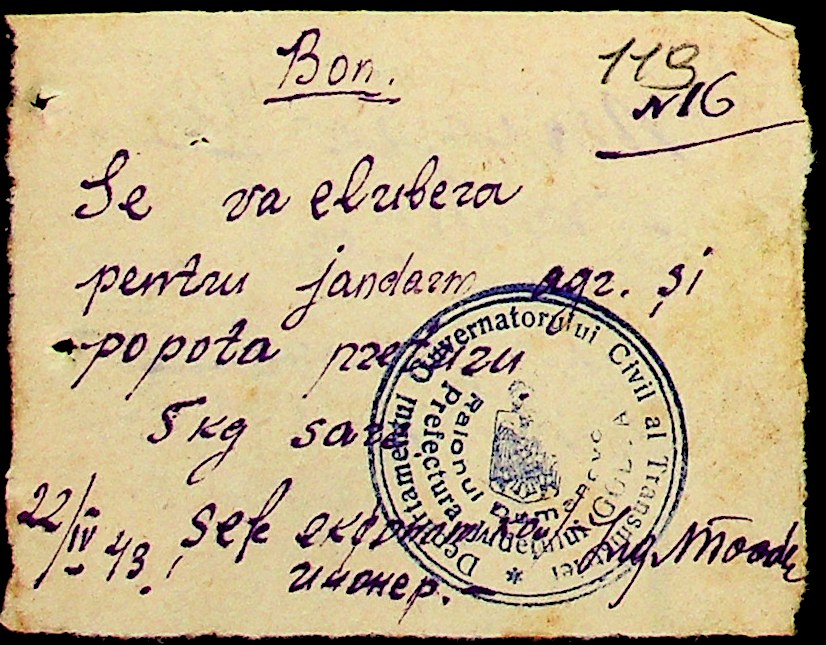 Bon.
119
N 16
Se va elubera
pentru jandarm agr. și
popota preturu
5 kg sare
22/IV 43. Șefe
инонер. Ing.
Departamentul Guvernatorului Civil al Transniniei
Prefectura Județului GOLTA
Raionul Domanovo